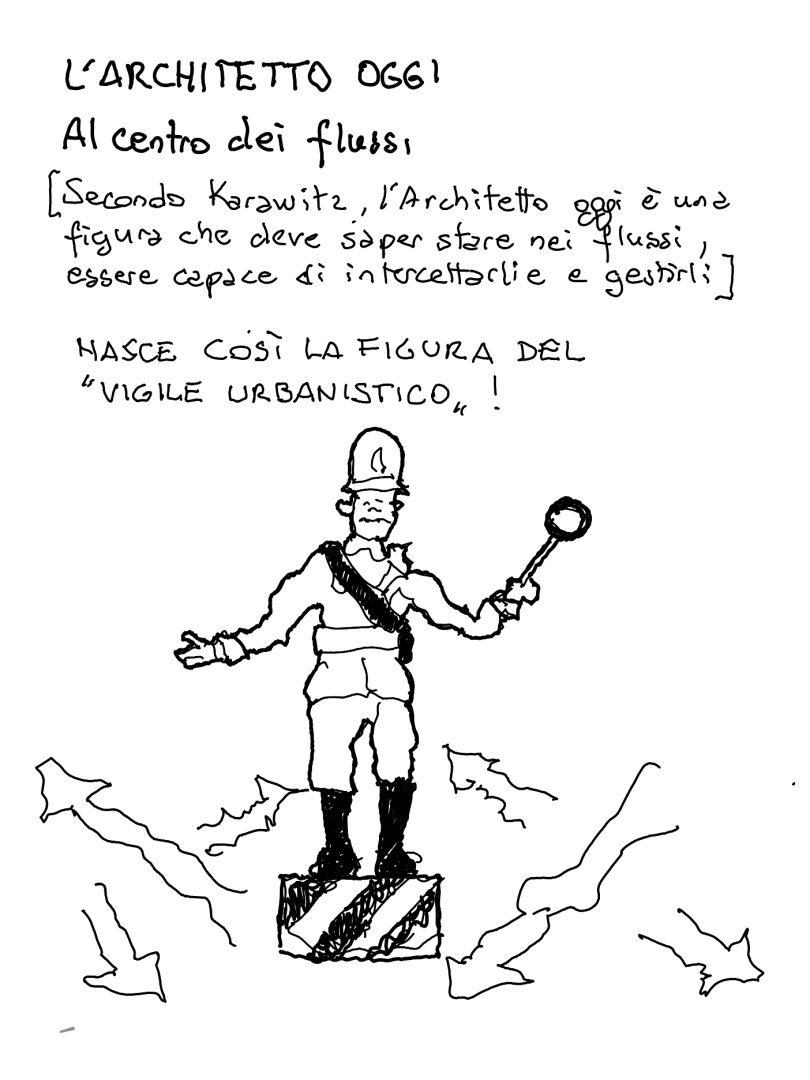 L'ARCHITETTO OGGI
Al centro dei flussi
[Secondo Karawitz, l'Architetto oggi è una
figura che deve saper stare nei flussi,
essere capace di intercettarlie e gestirli]
NASCE COSÌ LA FIGURA DEL
"VIGILE URBANISTICO„ !